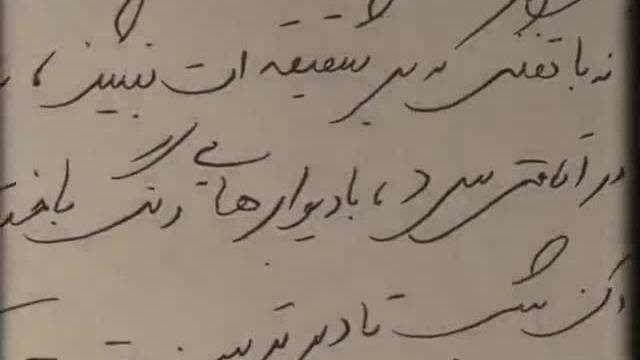 نه با تفنگی که بر شقیقه ات بنشیند،
در اتاقی سرد، با دیوارهایی رنگ باخته
شب تا دیر